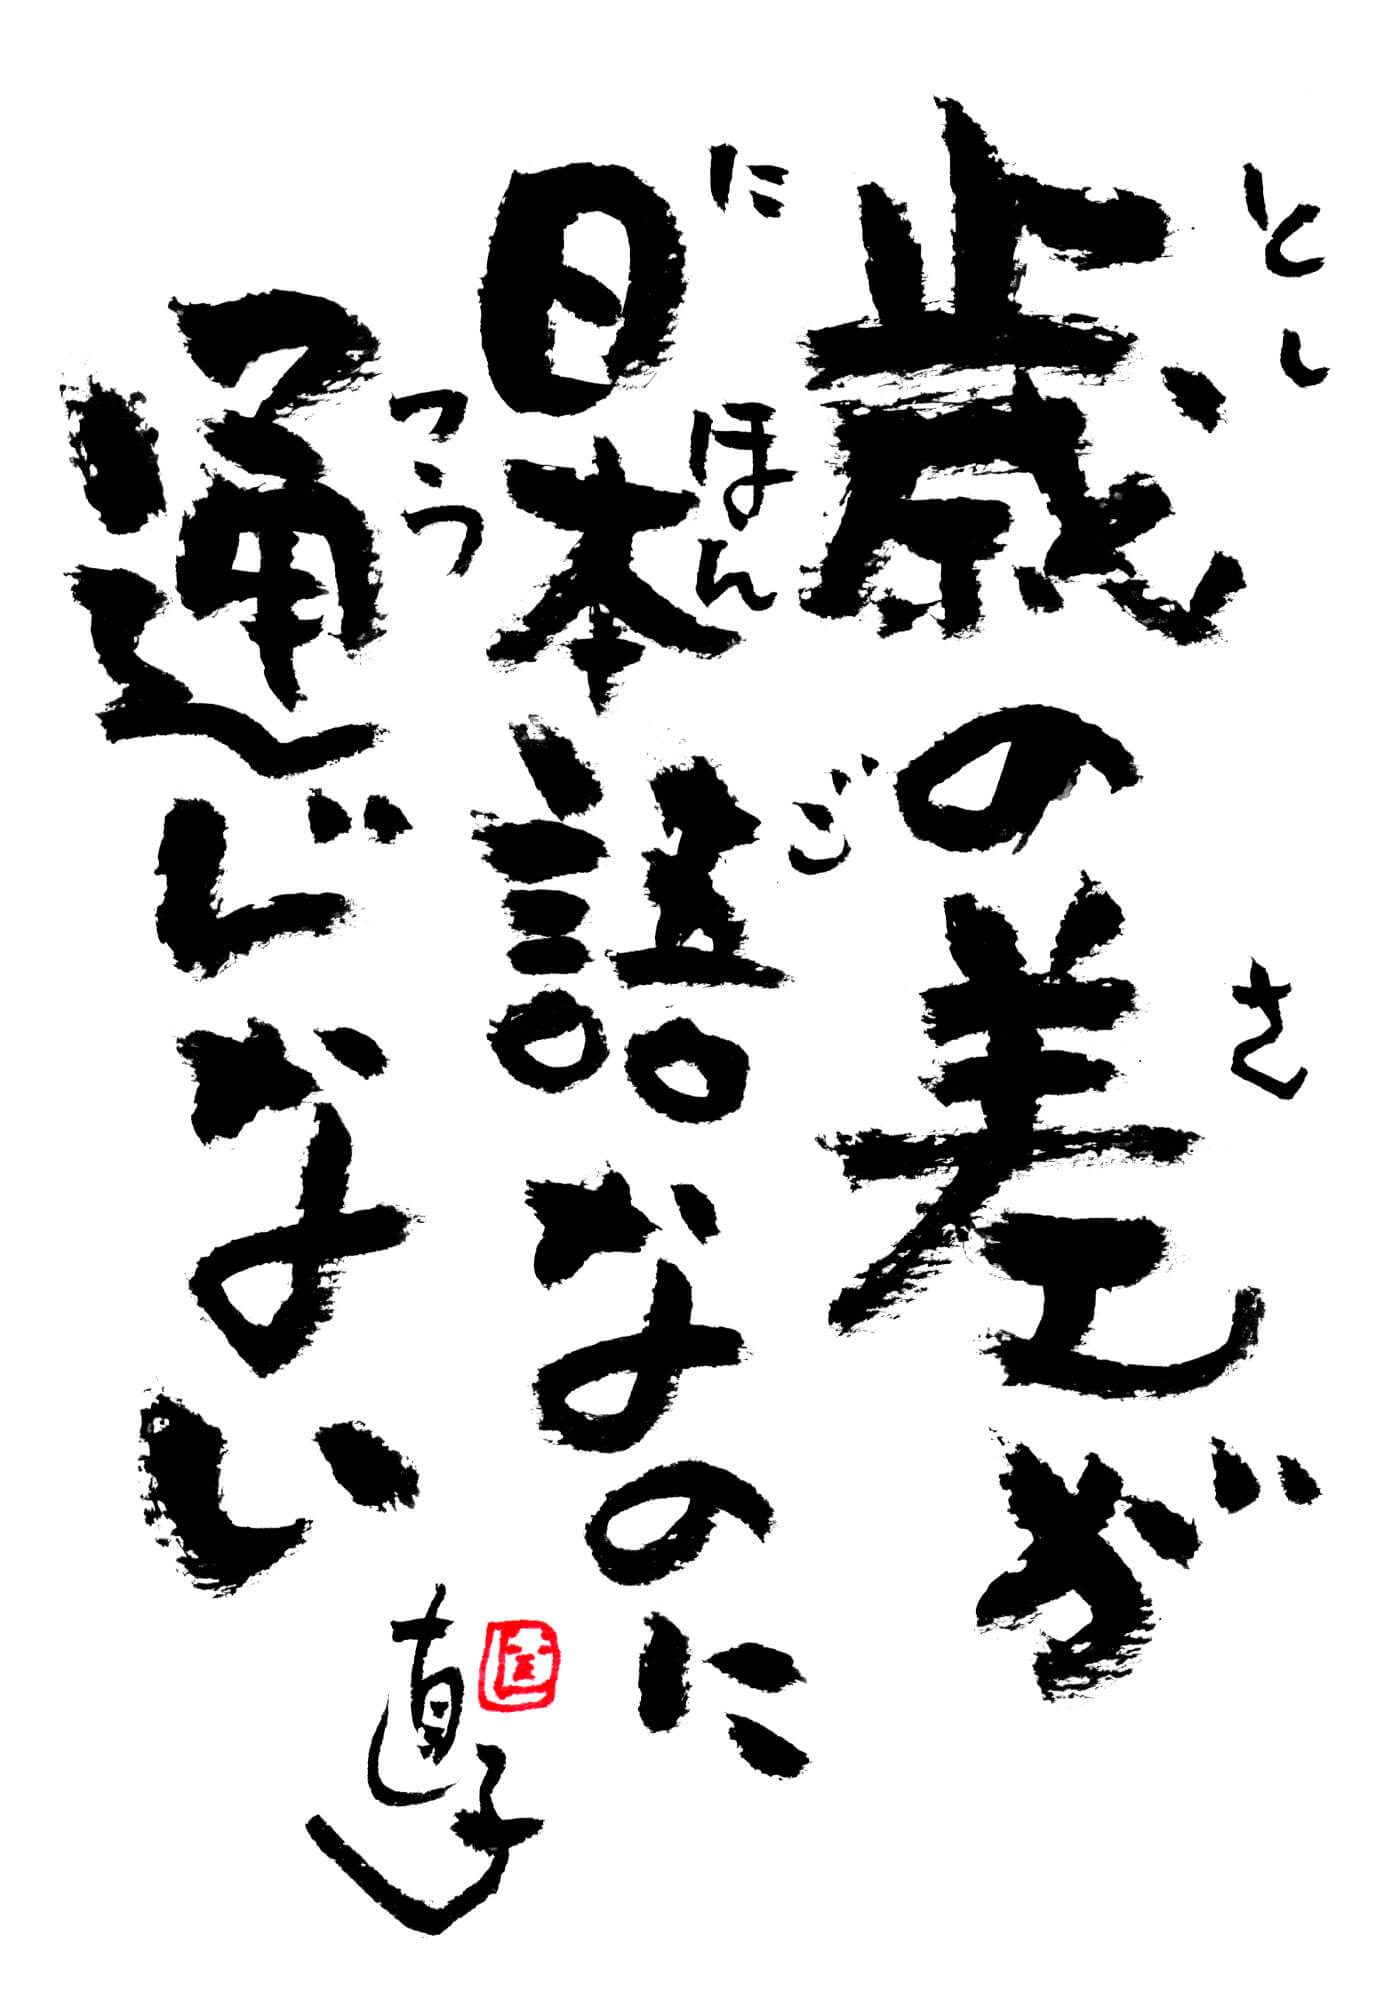 歳の差が
とし さ
日本語なのに
にほんご
通じない
つう
直子